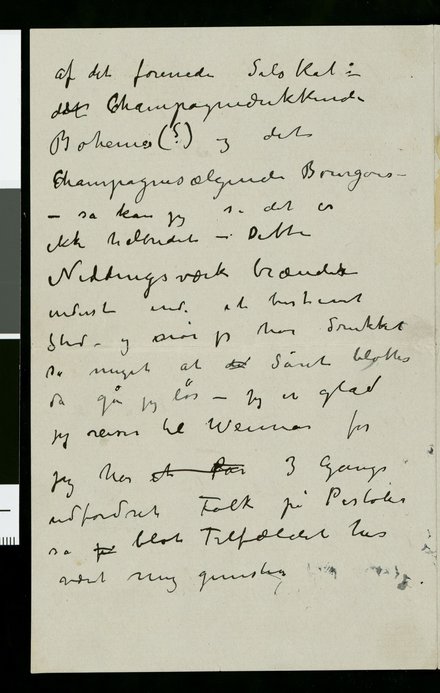 af det forenede Selskab :
det Champagnedrikkende
Bohemes (?) og det
Champagnesælgende Bourgois –
– så kan jeg se det er
ikke helbredet – Dette
Niddingsværk brænder
inderst inde. et bestemt
Sted – og når jeg har drukket
så meget at Såret blottes
da går jeg løs – jeg er glad
jeg reiser til Weimar for
jeg har et par 3 Gange
udfordret Folk på Pistoler
så blot Tilfældet har
været mig gunstig